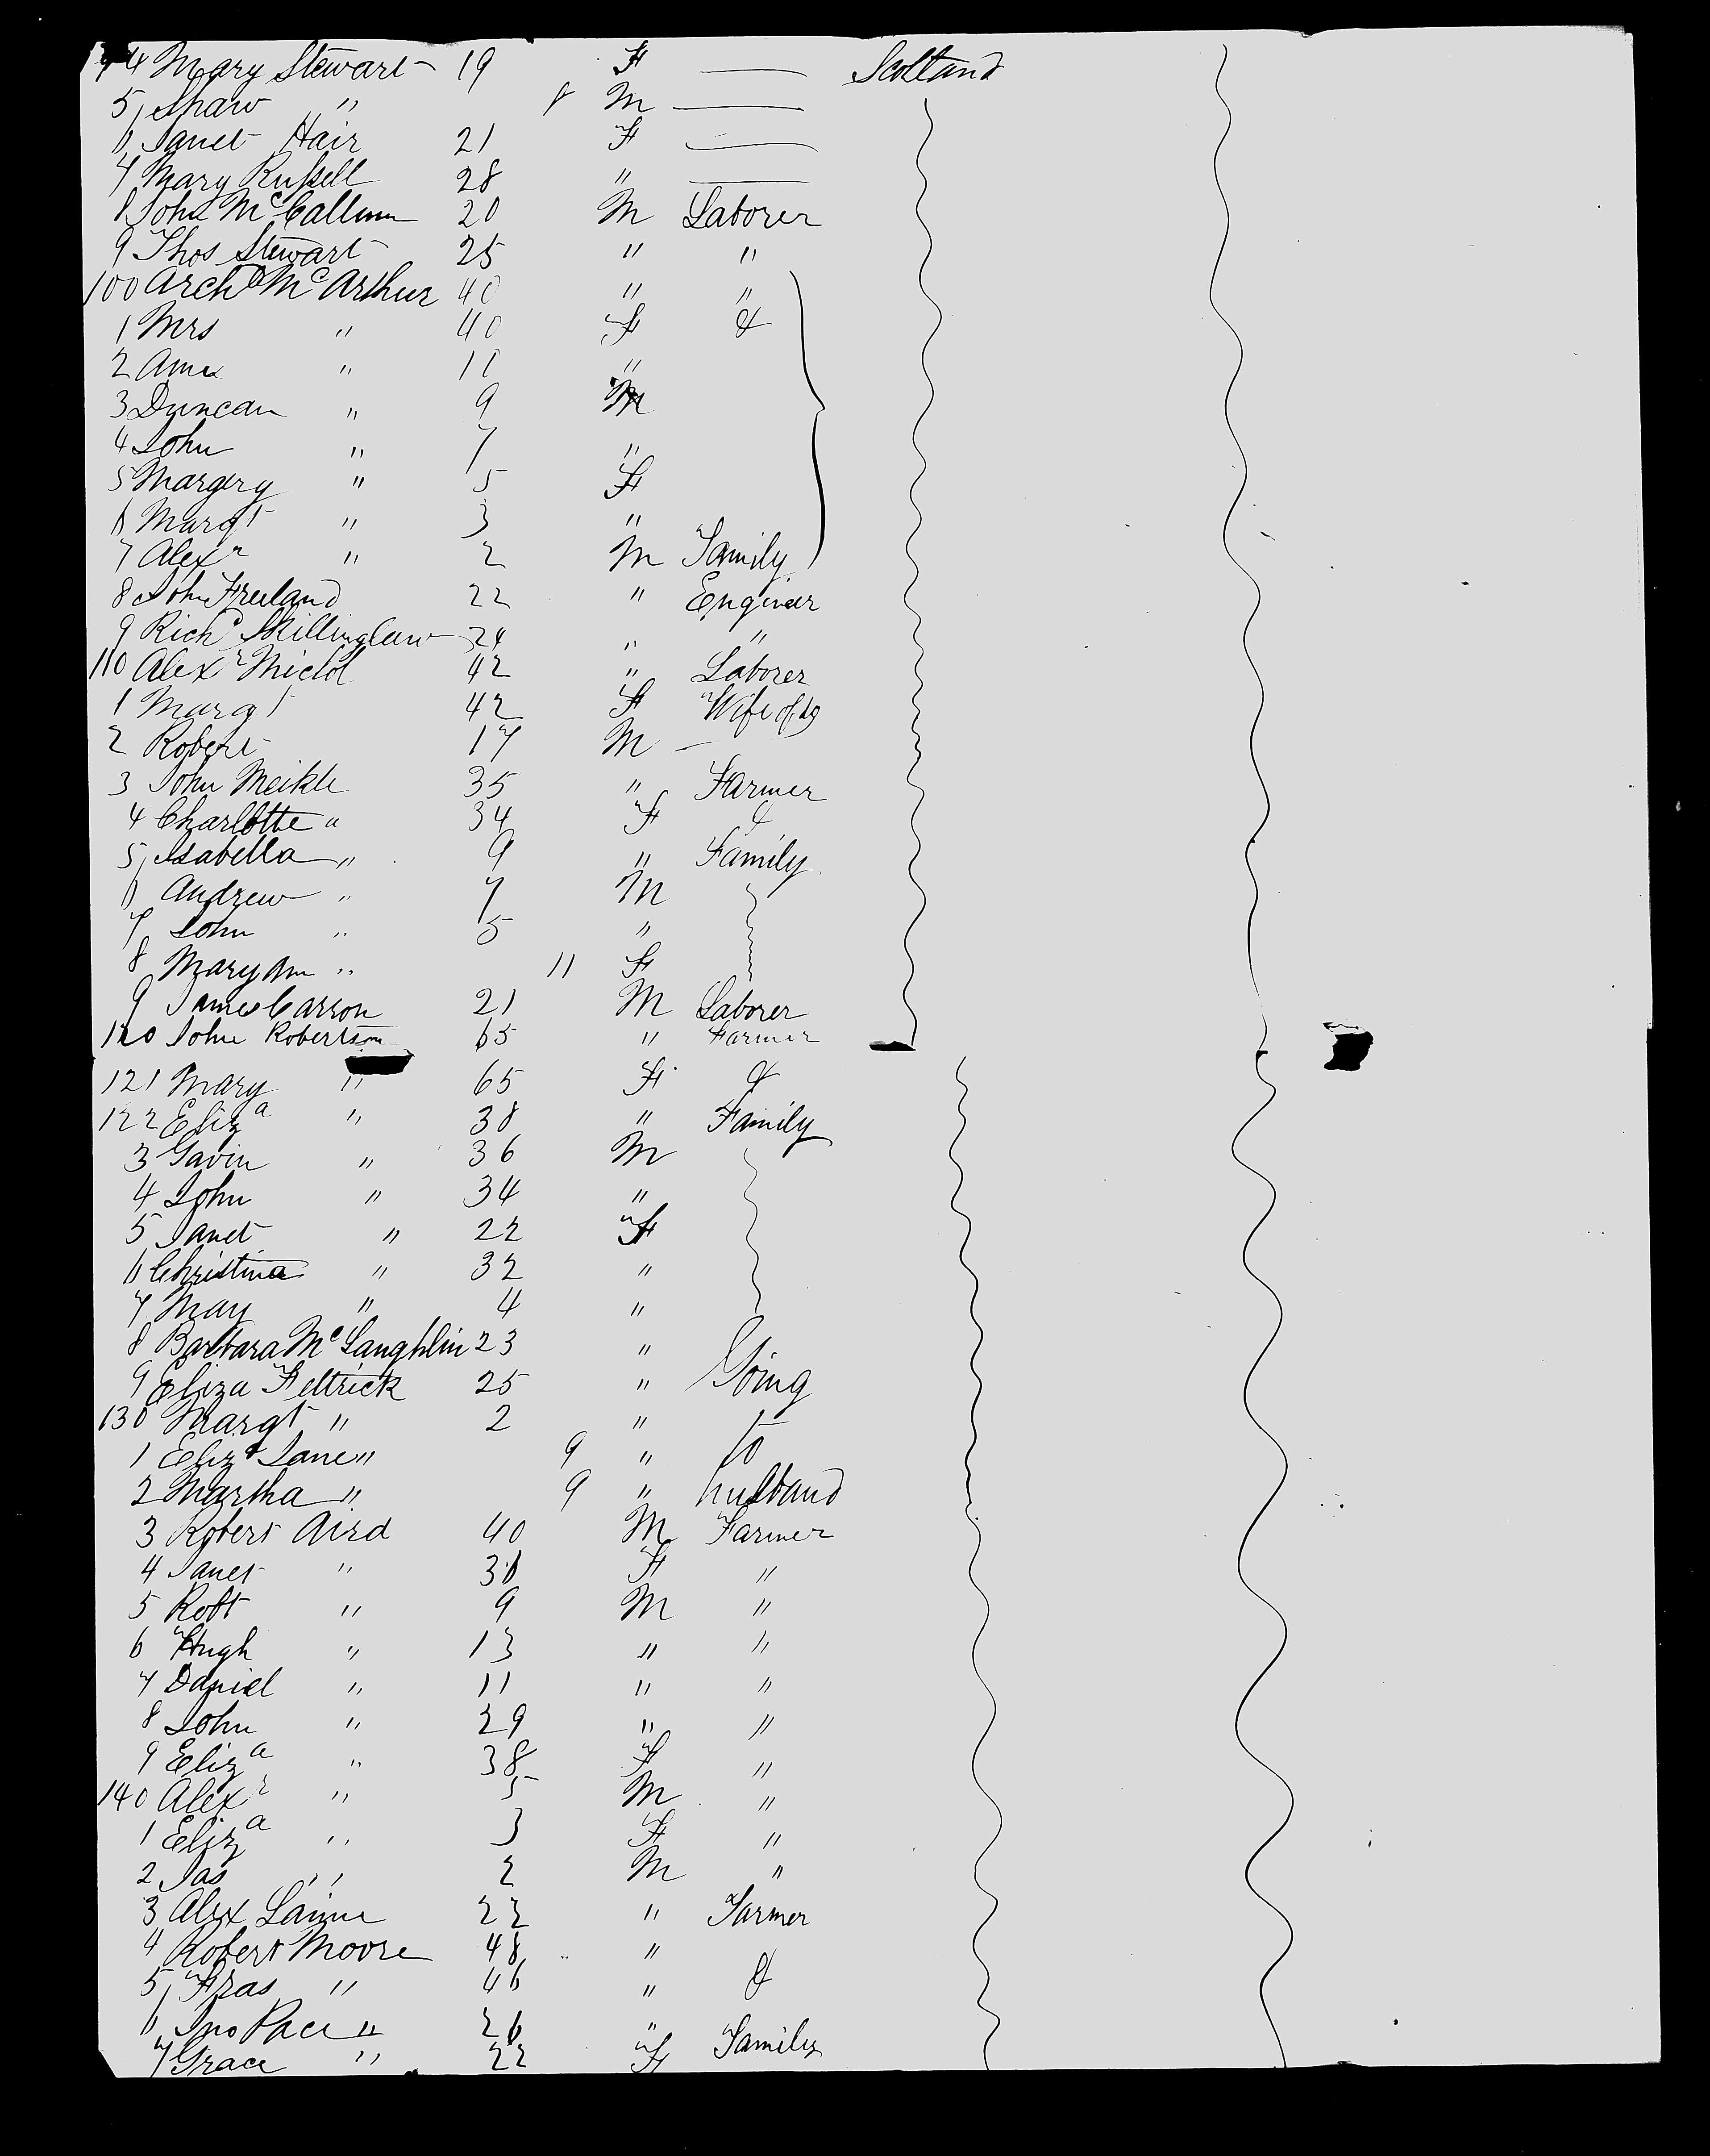 94 Mary Stewart 19 F — Scotland
5 Shaw " 8 M —
6 Janet Hair 21 F —
7 Mary Russell 28 " —
8 John McCallum 20 M Laborer
9 Thos Stewart 25 " "
100 Archd McArthur 40 " "
1 Mrs " 40 F &
2 Ama " 11 "
3 Duncan " 9 M
4 John " 7 "
5 Margery " 5 F
6 Margt " 3 "
7 Alexr " 2 M Family
8 John Freeland 22 " Engineer
9 Richd Skillinglaw 24 " "
110 Alexr Michol 42 " Laborer
1 Margt 42 F Wife of do
2 Robert 17 M —
3 John Meikle 35 " Farmer
4 Charlotte " 34 F &
5 Isabella " 9 " Family
6 Andrew " 7 M
7 John " 5 "
8 Mary Ann " 11 F
9 James Carson 21 M Laborer
120 John Robertson 65 " Farmer
121 Mary " 65 F &
122 Eliza " 38 " Family
3 Gavin " 36 M
4 John " 34 "
5 Janet " 22 F
6 Christina " 32 "
7 May " 4 "
8 Barbara McLaughlin 23 "
9 Eliza Feltrick 25 " Going
130 Margt " 2 " to
1 Eliza Jane " 9 "
2 Martha " 9 " husband
3 Robert Aird 40 M Farmer
4 Janet " 36 F "
5 Robt " 9 M "
6 Hugh " 13 " "
7 Daniel " 11 " "
8 John " 29 " "
9 Eliza " 38 F "
140 Alexr " 5 M "
1 Eliza " 3 F "
2 Jas " 2 M "
3 Alex Laime 22 " Farmer
4 Robert Moore 48 "
5 Fras " 46 " &
6 Jno Pace " 26 "
7 Grace " 22 F Family